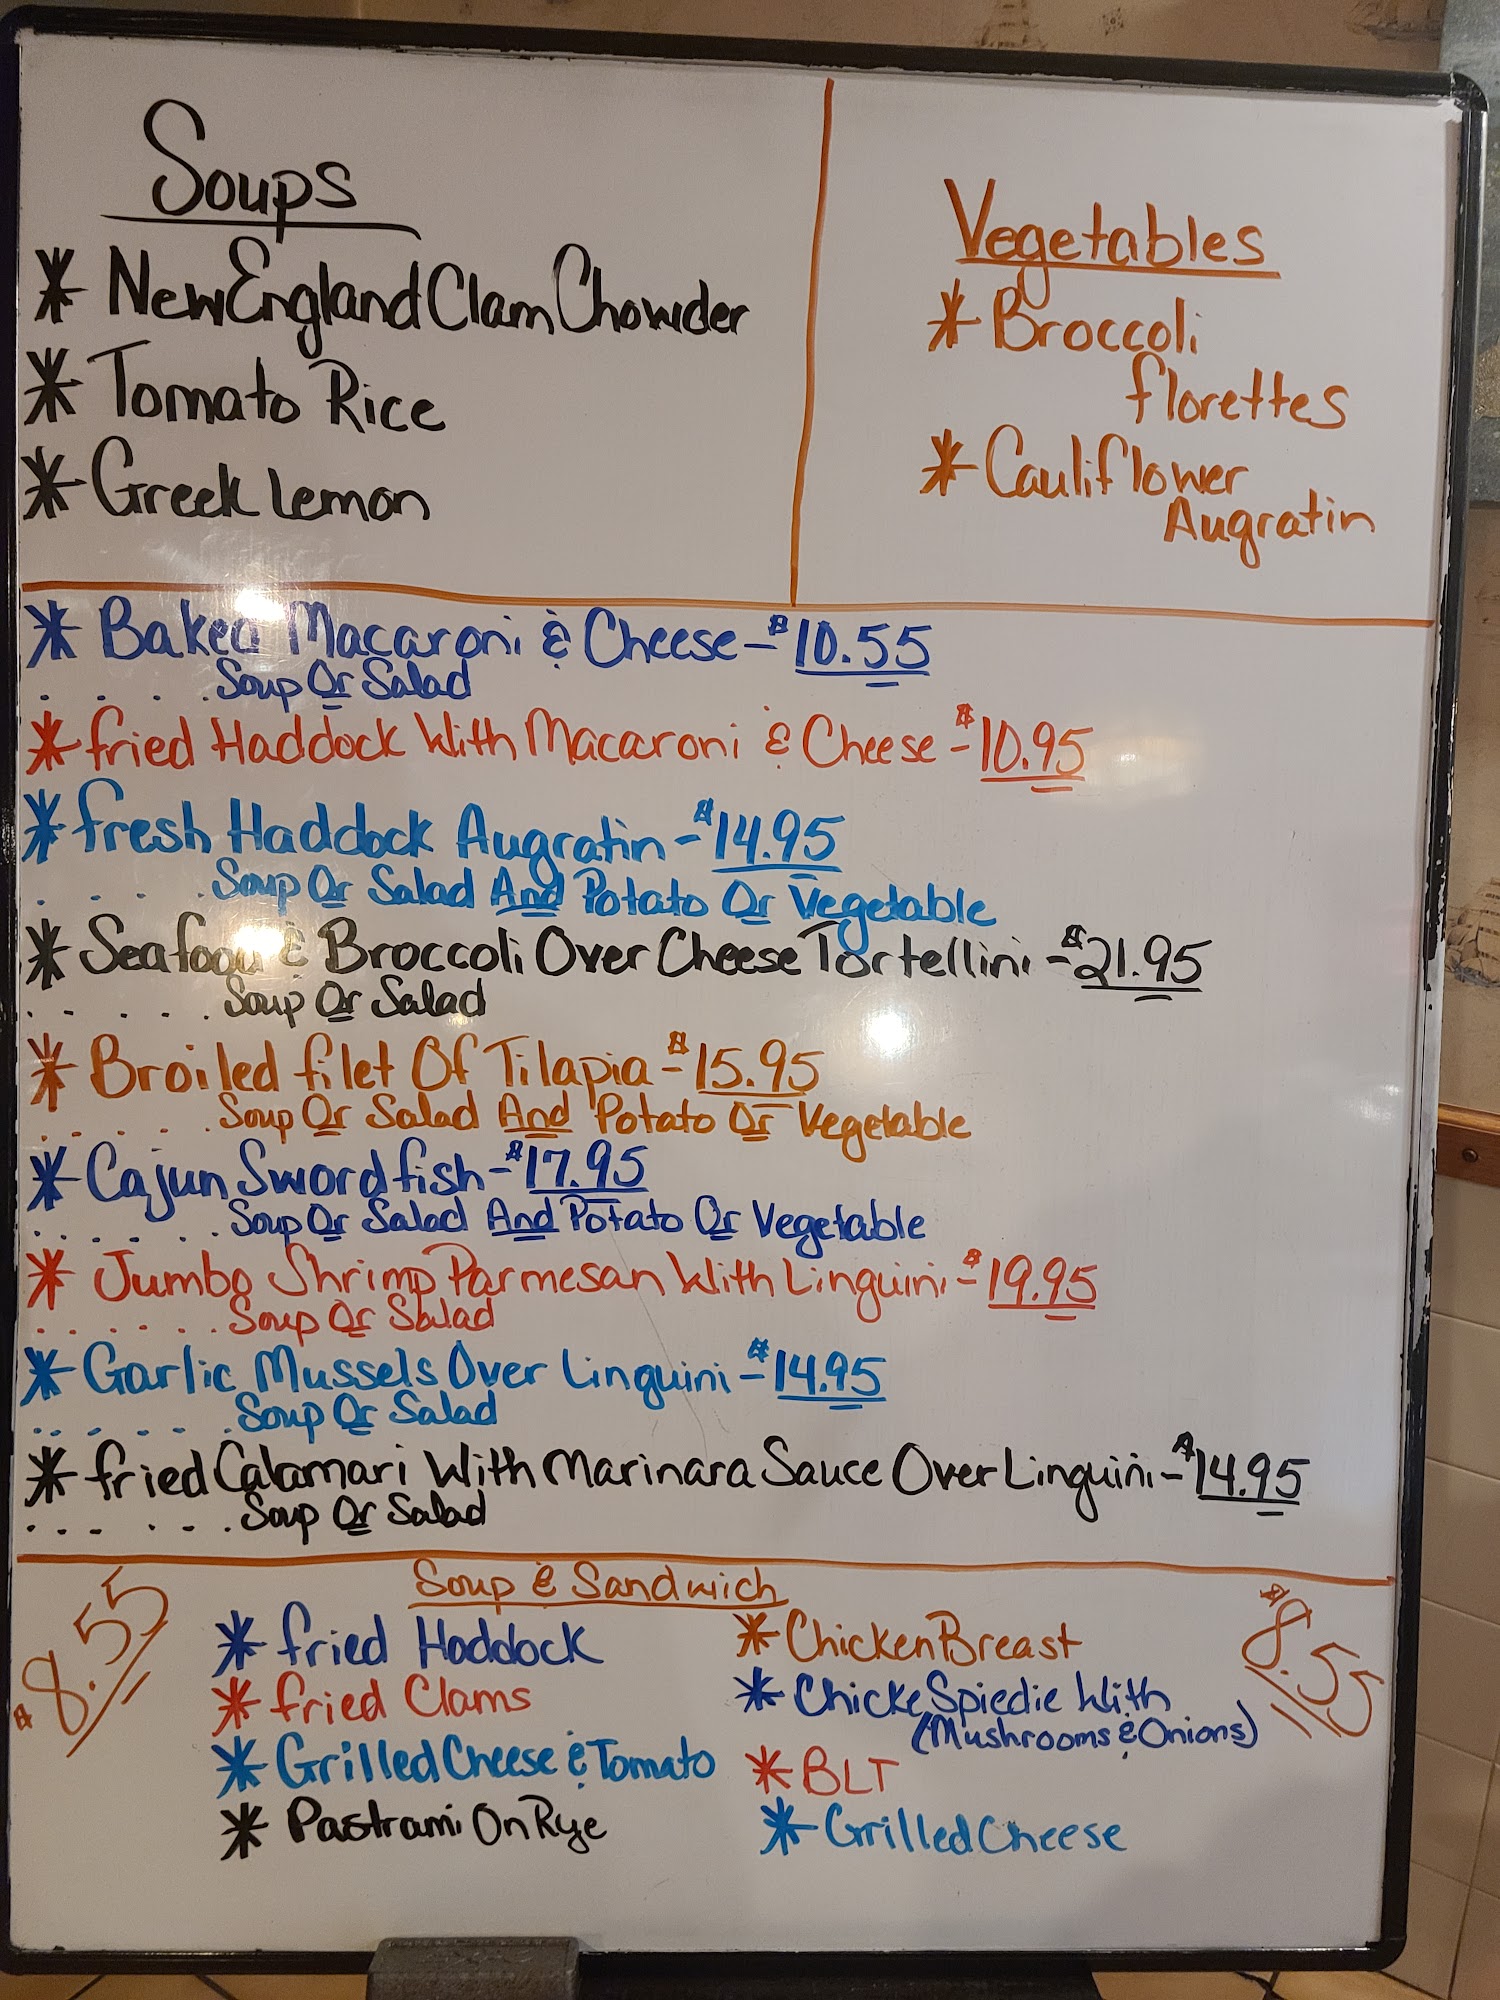 Soups
* New England Clam Chowder
* Tomato Rice
* Greek Lemon
Vegetables
* Broccoli
florettes
* Cauliflower
Augratin
* Baked Macaroni & Cheese - $10.55
. . . . . Soup Or Salad
* fried Haddock With Macaroni & Cheese - $10.95
* fresh Haddock Augratin - $14.95
. . . . . Soup Or Salad And Potato Or Vegetable
* Seafood & Broccoli Over Cheese Tortellini - $21.95
. . . . . . Soup Or Salad
* Broiled filet Of Tilapia - $15.95
. . . . . . Soup Or Salad And Potato Or Vegetable
* Cajun Swordfish - $17.95
. . . . . . Soup Or Salad And Potato Or Vegetable
* Jumbo Shrimp Parmesan With Linguini - $19.95
. . . . . . Soup Or Salad
* Garlic Mussels Over Linguini - $14.95
. . . . . . Soup Or Salad
* fried Calamari With Marinara Sauce Over Linguini - $14.95
. . . . . . Soup Or Salad
Soup & Sandwich
$8.55
* fried Haddock
* fried Clams
* Grilled Cheese & Tomato
* Pastrami On Rye
* Chicken Breast
* Chicke Spiedie With
(Mushrooms & Onions)
* BLT
* Grilled Cheese
$8.55